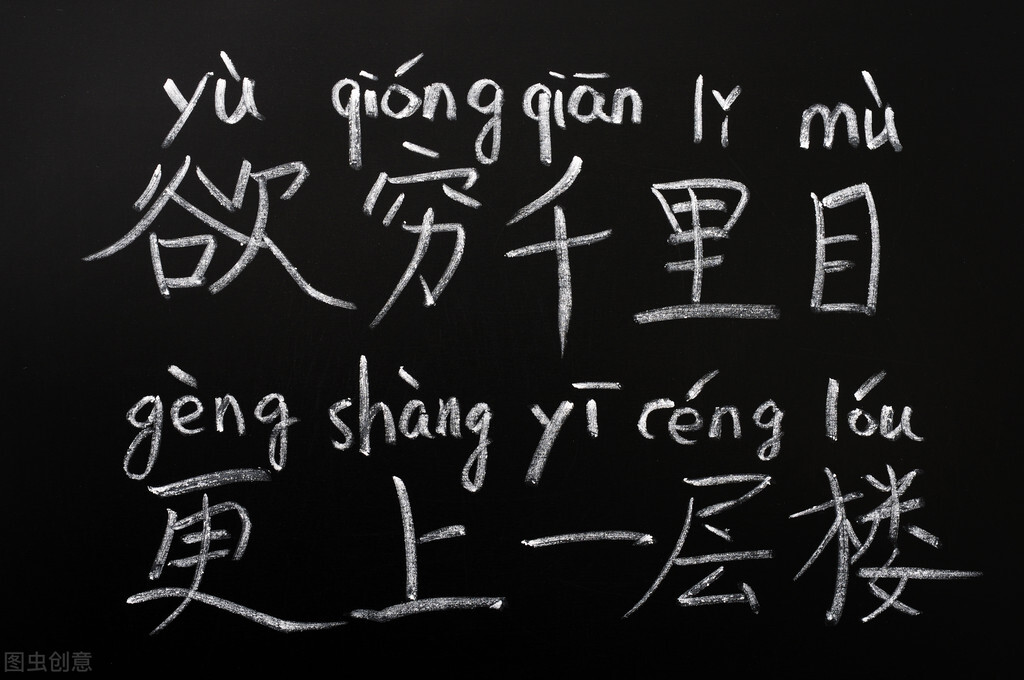 yù qióng qiān lǐ mù
欲穷千里目
gèng shàng yī céng lóu
更上一层楼
图虫创意